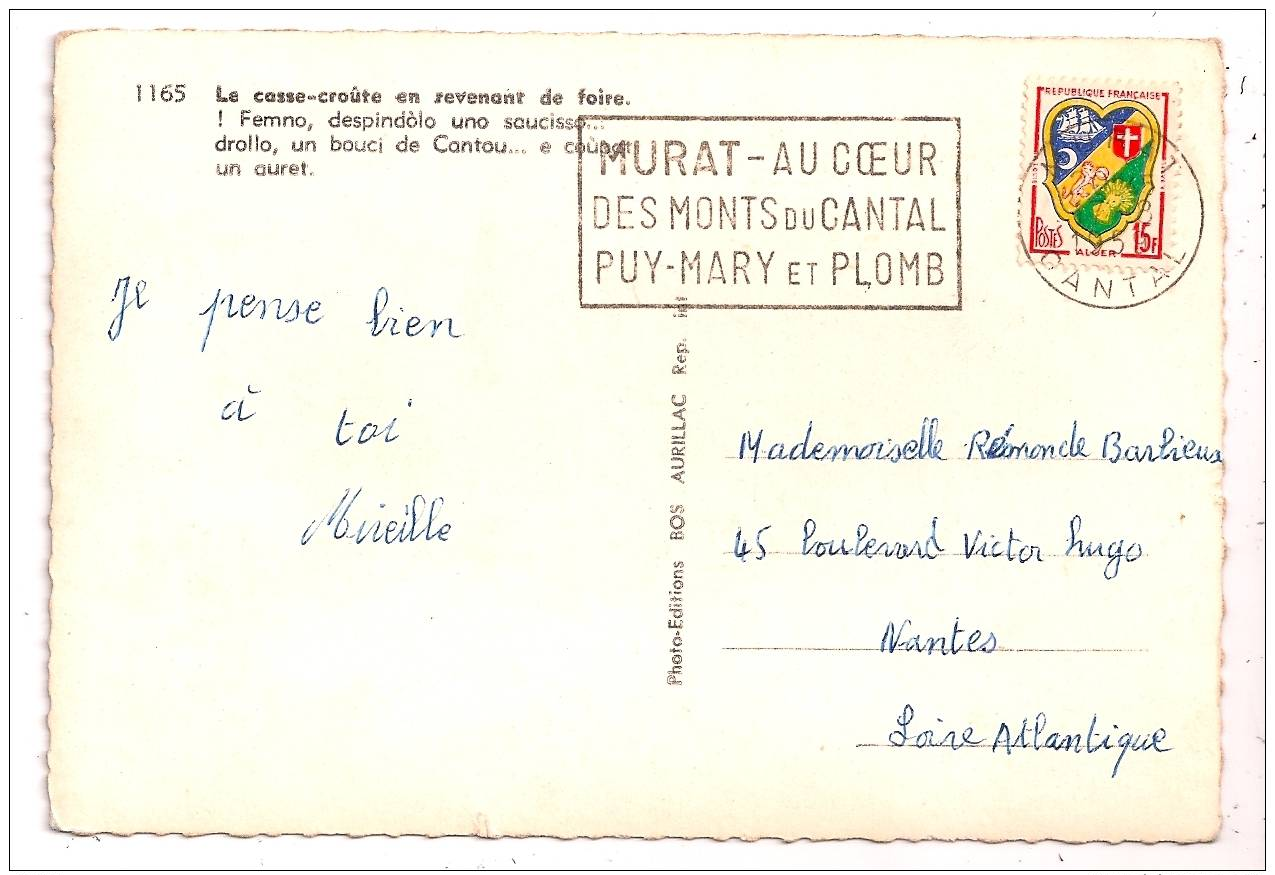 1165 Le casse-croûte en revenant de foire.
! Femno, despindòlo uno saucisso...
drollo, un bouci de Cantou... e coùpat
un auret.
MURAT - AU CŒUR
DES MONTS DU CANTAL
PUY-MARY ET PLOMB
REPUBLIQUE FRANÇAISE
POSTES 15F
ALGER
CANTAL
Je pense bien
à toi
Mireille
Photo-Editions BOS AURILLAC Rep. int
Mademoiselle Rémonde Barbieux
45 boulevard Victor hugo
Nantes
Loire Atlantique